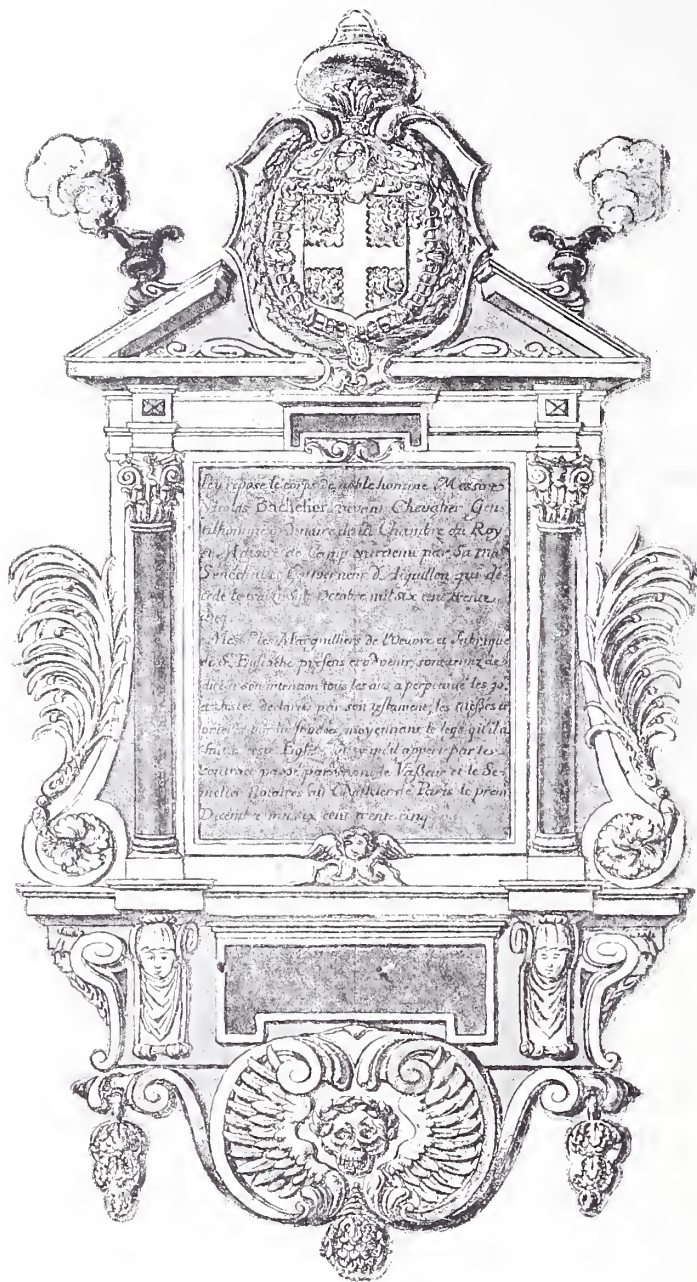 Icy repose le corps de noble homme Messire
Nicolas Bachelier vivant Chevalier Gen-
tilhomme Ordinaire de la Chambre du Roy
et Maistre de Camp entretenu par Sa ma
Senechal et Gouverneur d'Aiguillon qui de-
ceda le Octobre mil six cent trente
cinq
Mess les Marguilliers de l'Oeuvre et Fabrique
de St Eustache presens et advenir sont tenuz de
son intention tous les ans a perpetuité les jo.
declarés par son testament, les Messes et
moyennant le legs qu'il a
Eglise appert par les
contract passé pardevant le Vasseur et le Se-
melier Notaires au Chastelet de Paris le prem
Decembre mil six cent trente cinq